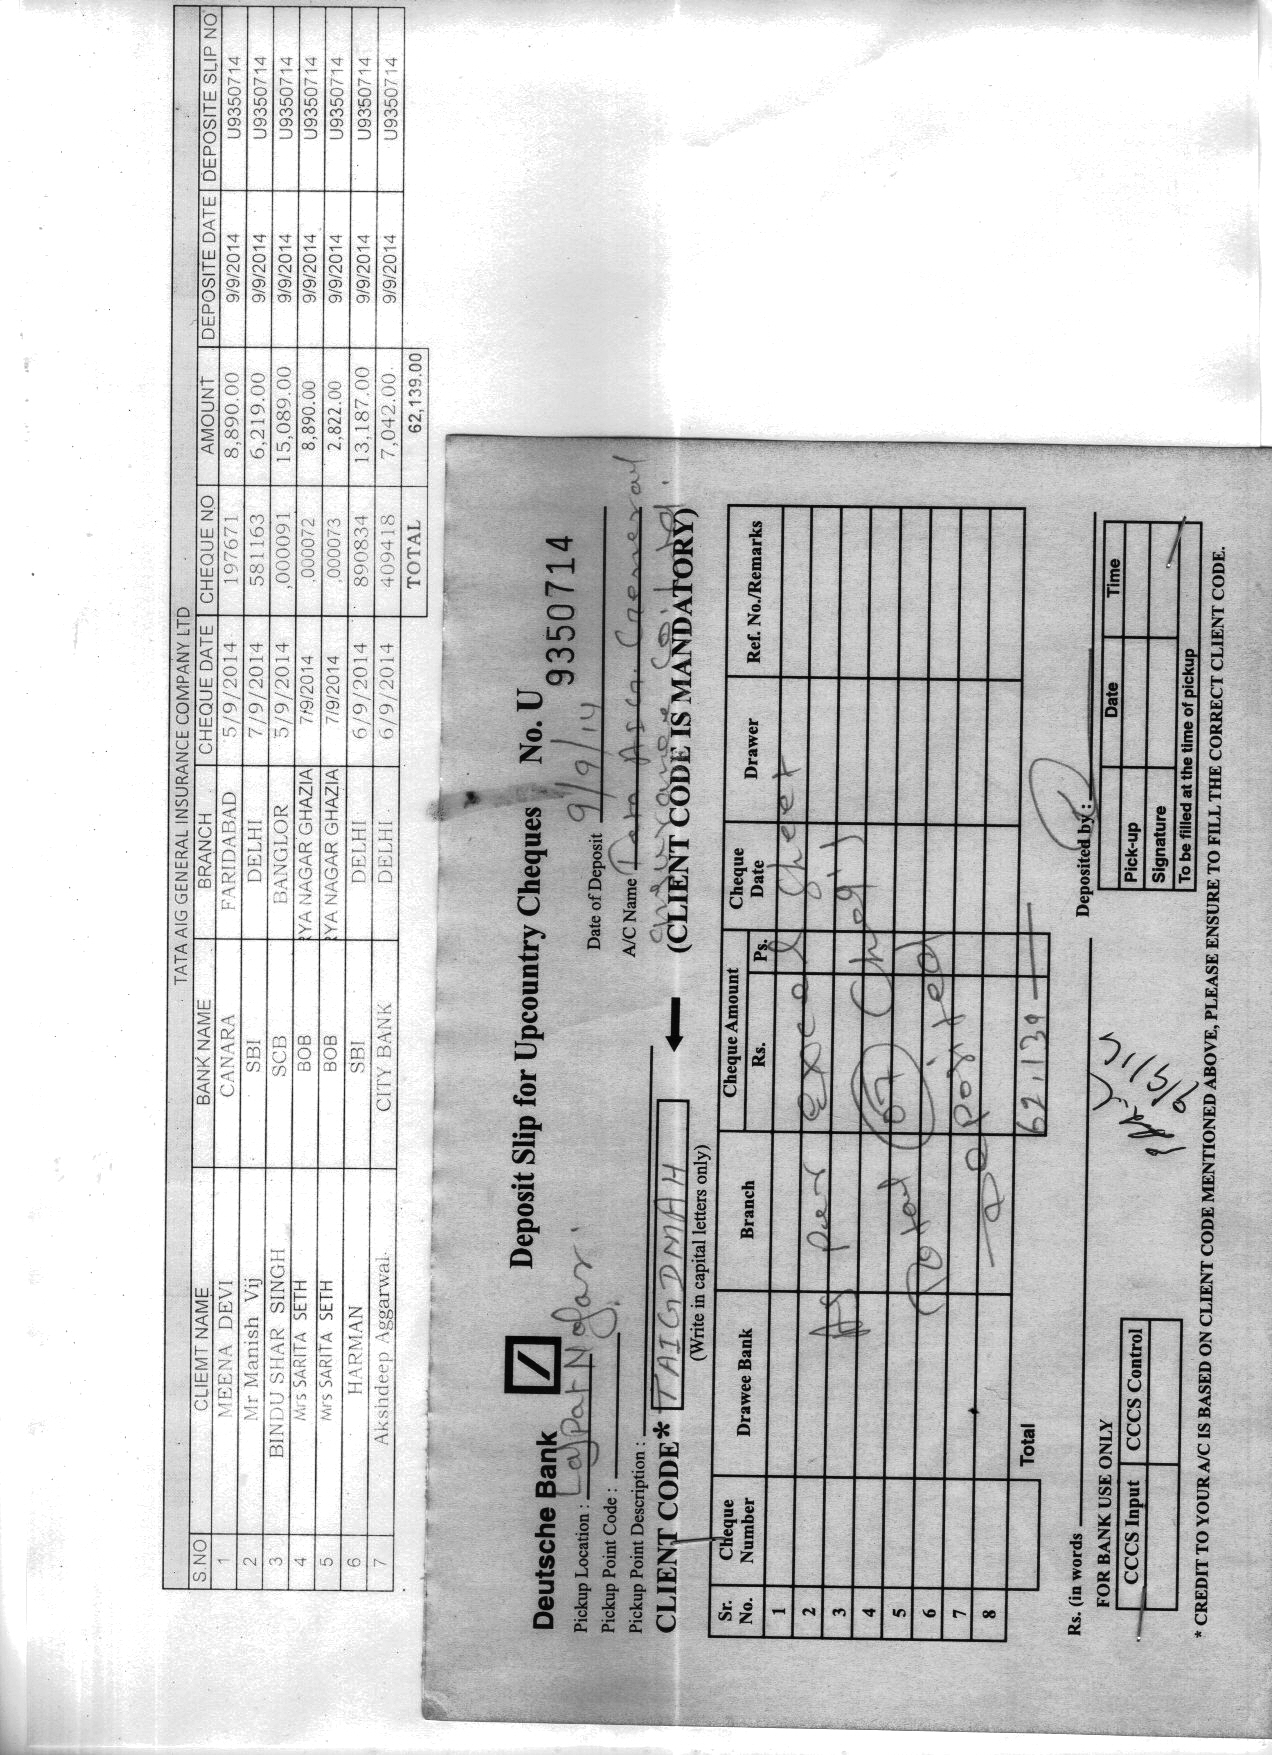 TATA AIG GENERAL INSURANCE COMPANY LTD
S.NO CLIEMT NAME BANK NAME BRANCH CHEQUE DATE CHEQUE NO AMOUNT DEPOSITE DATE DEPOSITE SLIP NO
1 MEENA DEVI CANARA FARIDABAD 5/9/2014 197671 8,890.00 9/9/2014 U9350714
2 Mr Manish Vij SBI DELHI 7/9/2014 581163 6,219.00 9/9/2014 U9350714
3 BINDU SHAR SINGH SCB BANGLOR 5/9/2014 ,000091 15,089.00 9/9/2014 U9350714
4 Mrs SARITA SETH BOB RYA NAGAR GHAZIA 7/9/2014 .000072 8,890.00 9/9/2014 U9350714
5 Mrs SARITA SETH BOB RYA NAGAR GHAZIA 7/9/2014 ,000073 2,822.00 9/9/2014 U9350714
6 HARMAN SBI DELHI 6/9/2014 890834 13,187.00 9/9/2014 U9350714
7 Akshdeep Aggarwal CITY BANK DELHI 6/9/2014 409418 7,042.00 9/9/2014 U9350714
TOTAL 62,139.00
Deutsche Bank Deposit Slip for Upcountry Cheques No. U 9350714
Pickup Location : Lajpat Nagar Date of Deposit 9/9/14
Pickup Point Code : A/C Name Tata AIG General
Pickup Point Description : Insurance Co. Ltd.
CLIENT CODE* TAIGDMAH (CLIENT CODE IS MANDATORY)
(Write in capital letters only)
Sr. No. Cheque Number Drawee Bank Branch Cheque Amount Rs. Ps. Cheque Date Drawer Ref. No./Remarks
1
2 As per excel sheet
3
4
5 Total (07) Chq's
6
7 Deposited
8
Total 62,139
Rs. (in words Deposited by :
FOR BANK USE ONLY
CCCS Input CCCS Control
Date Time
Pick-up
Signature
To be filled at the time of pickup
* CREDIT TO YOUR A/C IS BASED ON CLIENT CODE MENTIONED ABOVE, PLEASE ENSURE TO FILL THE CORRECT CLIENT CODE.